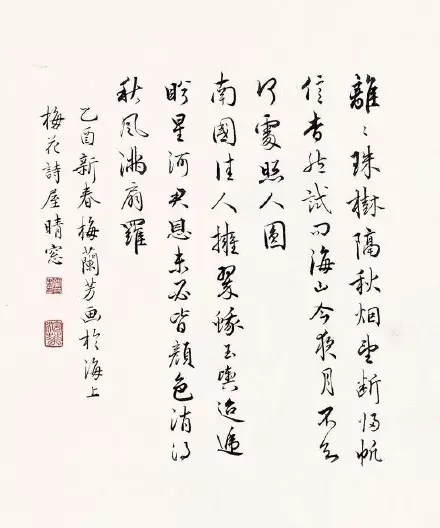 離〻珠樹隔秋烟望斷歸帆
信杳然試问海山今夜月不知
何處照人圓
南國佳人擁翠蛾玉輿迢遞
盼星河君恩未必皆顏色消得
秋風滿扇羅
乙酉新春梅蘭芳画於海上
梅花詩屋晴窓